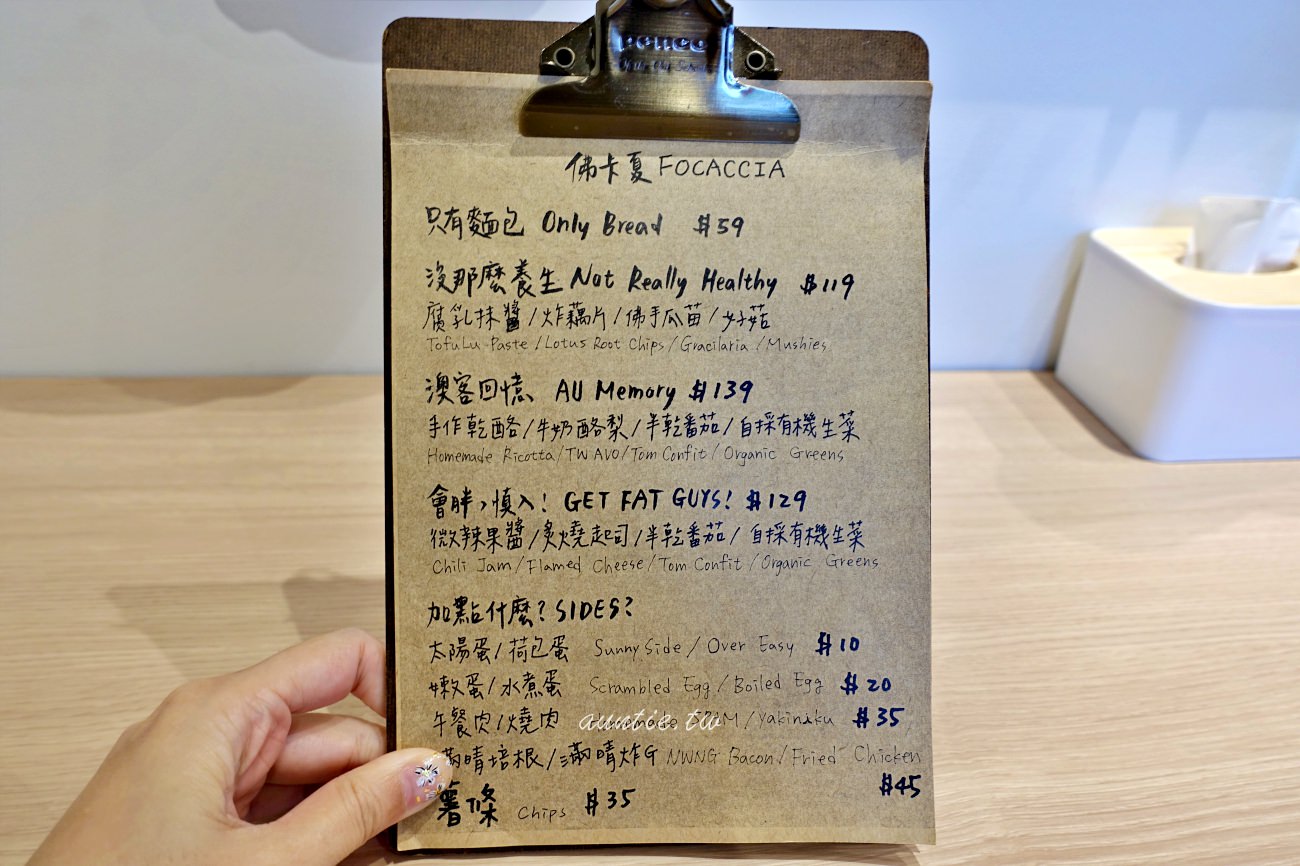 penco
佛卡夏 FOCACCIA
只有麵包 Only Bread $59
沒那麼養生 Not Really Healthy $119
腐乳抹醬/炸藕片/佛手瓜苗/好菇
TofuLu Paste/Lotus Root Chips/Gracilaria/Mushies
澳客回憶 AU Memory $139
手作乾酪/牛奶酪梨/半乾番茄/自採有機生菜
Homemade Ricotta/TW AVO/Tom Confit/Organic Greens
會胖,慎入! GET FAT GUYS! $129
微辣果醬/炙燒起司/半乾番茄/自採有機生菜
Chili Jam/Flamed Cheese/Tom Confit/Organic Greens
加點什麼? SIDES?
太陽蛋/荷包蛋 Sunny Side/Over Easy $10
嫩蛋/水煮蛋 Scrambled Egg/Boiled Egg $20
午餐肉/燒肉 /Yakiniku $35
auntie.tw
滿晴培根/滿晴炸G NWNG Bacon/Fried Chicken
$45
薯條 Chips $35